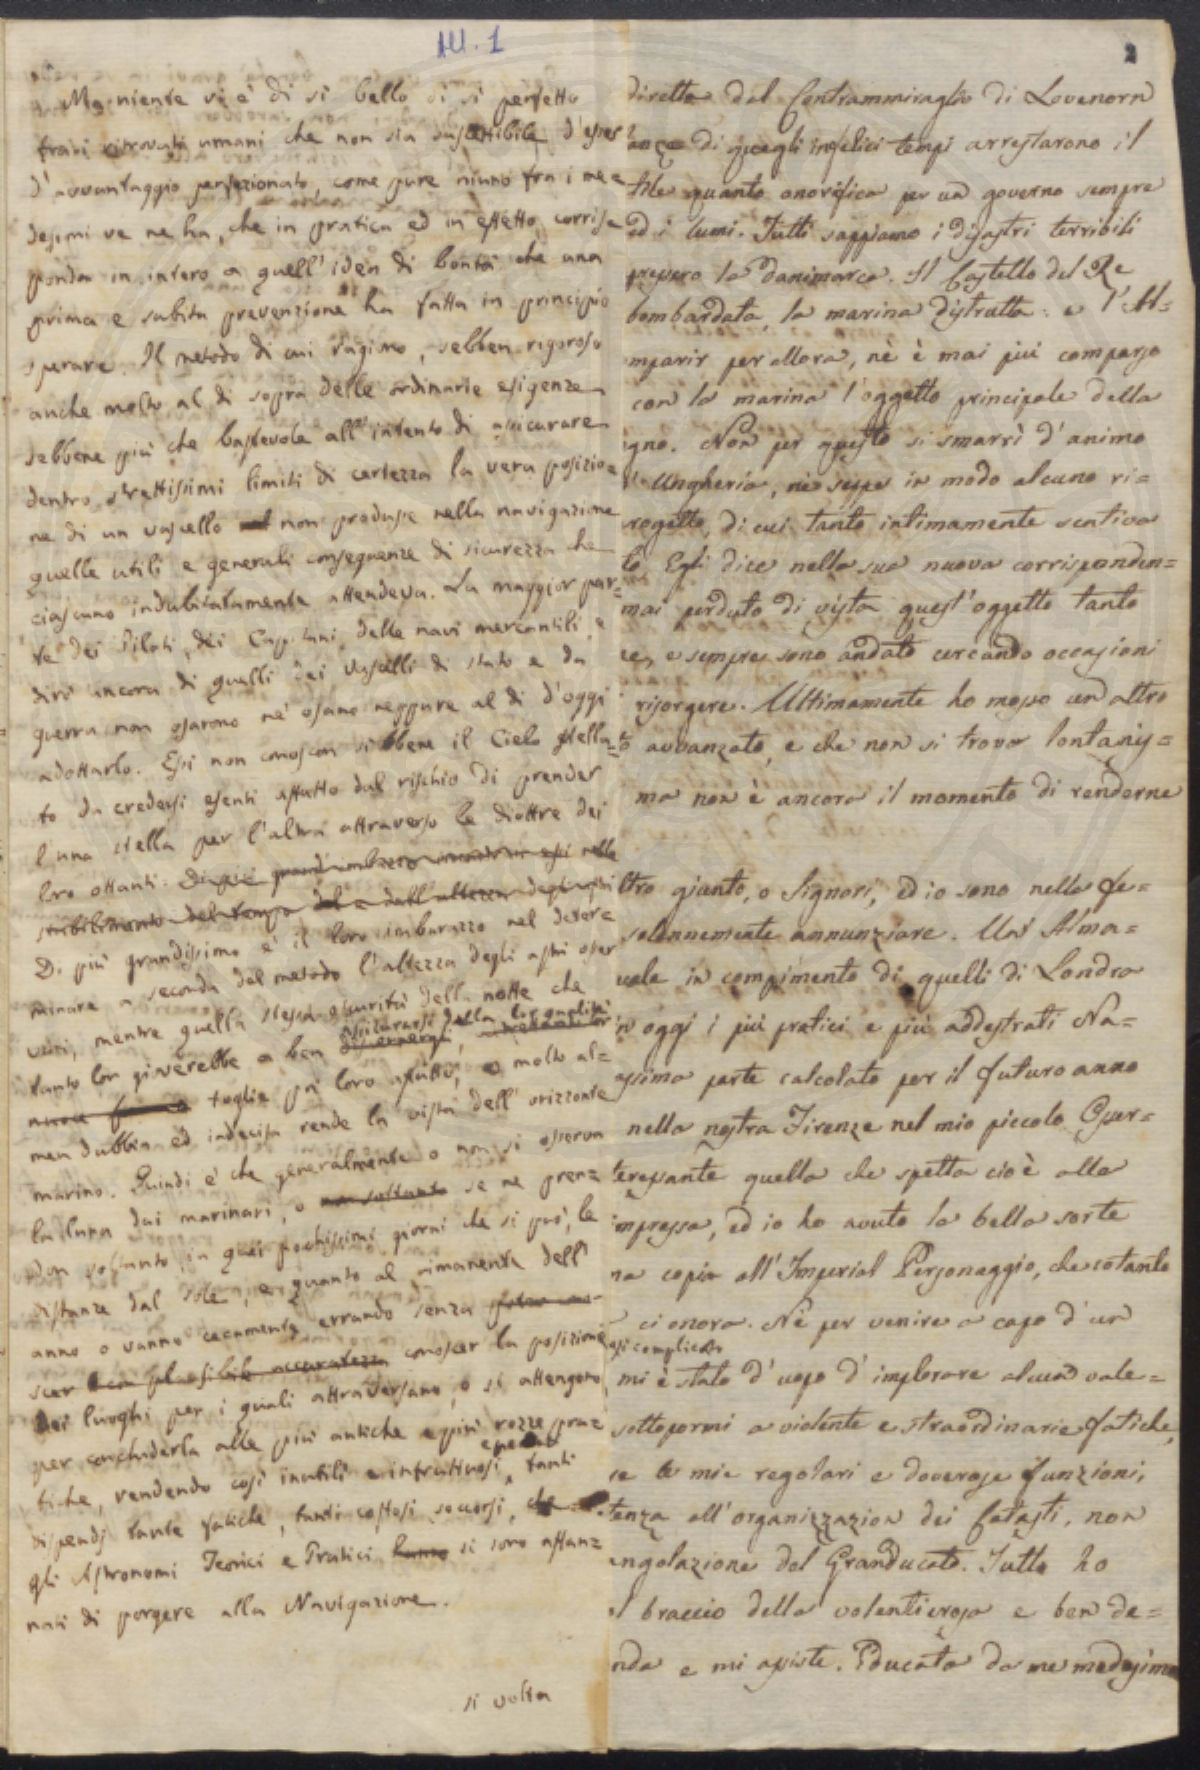 III. 1
Ma niente vi è di sì bello di sì perfetto
frai ritrovati umani che non sia suscettibile d'esser
d'avvantaggio perfezionato, come pure niuno fra i me=
desimi ve ne ha, che in pratica ed in effetto corris=
ponda in intero a quell'idea di bontà che una
prima e subita prevenzione ha fatta in principio
sperare. Il metodo di cui ragiono, sebben rigoroso
anche molto al di sopra delle ordinarie esigenze
sebbene più che bastevole all'intento di assicurare
dentro strettissimi limiti di certezza la vera posizio=
ne di un vascello non produsse nella navigazione
quelle utili e generali conseguenze di sicurezza che
ciascuno indubitatamente attendeva. La maggior par=
te dei Piloti, dei Capitani delle navi mercantili, e
dirò ancora di quelli dei Vascelli di stato e da
guerra non osarono nè osano neppure al dì d'oggi
adottarlo. Essi non conoscon sì bene il Cielo stella=
to da credersi esenti affatto dal rischio di prender
l'una stella per l'altra attraverso le diottre dei
loro ottanti. Di più grand'imbarazzo incontran essi nello
stabilimento del tempo e dall'altezza degli astri
Di più grandissimo è il loro imburazzo nel deter=
minare a seconda del metodo l'altezza degli astri osser
vati, mentre quella stessa oscurità della notte che
assicurarsi della lor qualità
tanto lor gioverebbe a ben discernergli,
toglie poi loro affatto, o molto al=
men dubbia ed indecisa rende la vista dell'orizzonte
marino. Quindi è che generalmente o non si osserva
la luna dai marinari, o non soltanto se ne pren=
don soltanto in quei pochissimi giorni che si può, le
distanze dal sole, e quanto al rimanente dell'
anno o vanno cecamente errando senza
con plausibile accuratezza conoscer la posizione
dei luoghi per i quali attraversano, o si attengono
per concluderla alle più antiche e più rozze pra=
tiche, rendendo così inutili e infruttuosi tanti
dispendj tante fatiche, tanti costosi soccorsi, che
gli Astronomi Teorici e Pratici hanno si sono affan=
nati di porgere alla Navigazione.
si volta
2
diretta dal Contrammiraglio di Lovenorn
anze di quegli infelici tempi arrestarono il
tile quanto onorifica per un governo sempre
ed i lumi. Tutti sappiamo i disastri terribili
pressero la Danimarca. Il Castello del Re
bombardata, la marina distrutta: e l'Al=
mparir per allora, nè è mai più comparso
con la marina l'oggetto principale della
gno. Non per questo si smarrì d'animo
d'Ungheria, nè seppe in modo alcuno ri=
rogetto, di cui tanto intimamente sentiva
to. Egli dice nella sua nuova corrisponden=
mai perduto di vista quest'oggetto tanto
re, e sempre sono andato cercando occasioni
risorgere. Ultimamente ho mosso un altro
to avvanzato, e che non si trova lontanis=
ma non è ancora il momento di renderne
ltro giunto, o Signori, ed io sono nella fe=
solennemente annunziare. Un Alma=
uale in compimento di quelli di Londra
in oggi i più pratici e più addestrati Na=
assima parte calcolato per il futuro anno
nella nostra Firenze nel mio piccolo Osser=
teressante quella che spetta cioè alla
impressa, ed io ho avuto la bella sorte
na copia all'Imperial Personaggio, che cotanto
ci onora. Nè per venire a capo d'un
osì complicato
mi è stato d'uopo d'implorare alcun vale=
sottopormi a violente e straordinarie fatiche,
se le mie regolari e doverose funzioni,
tenza all'organizzazion dei Catasti, non
angolazione del Granducato. Tutto ho
l braccio della volenterosa e ben de=
nda e mi assiste. Educata da me medesimo